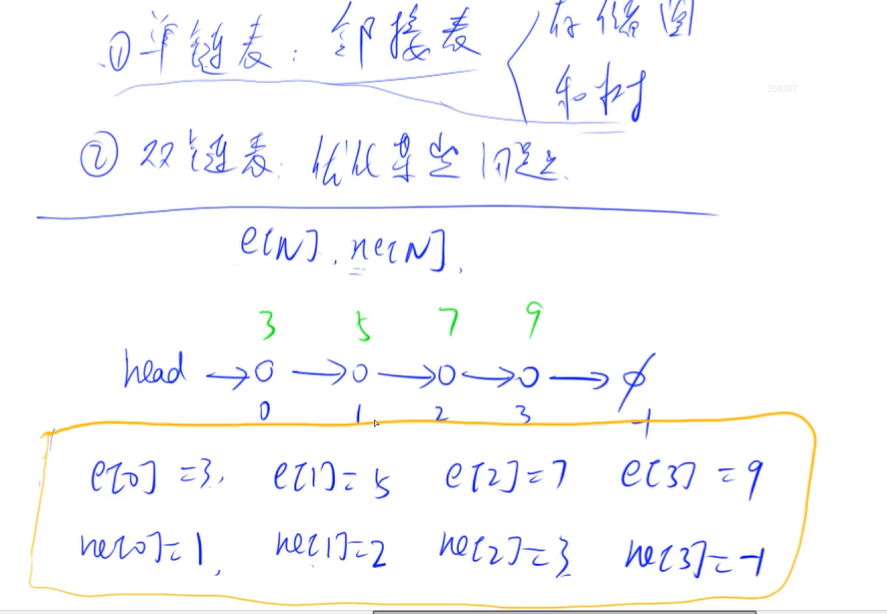 ① 单链表：邻接表 存储图
和树
② 双链表：优化某些问题
e[N], ne[N],
3 5 7 9
head → o → o → o → o → ∅
0 1 2 3 -1
e[0] = 3, e[1] = 5 e[2] = 7 e[3] = 9
ne[0] = 1, ne[1] = 2 ne[2] = 3 ne[3] = -1